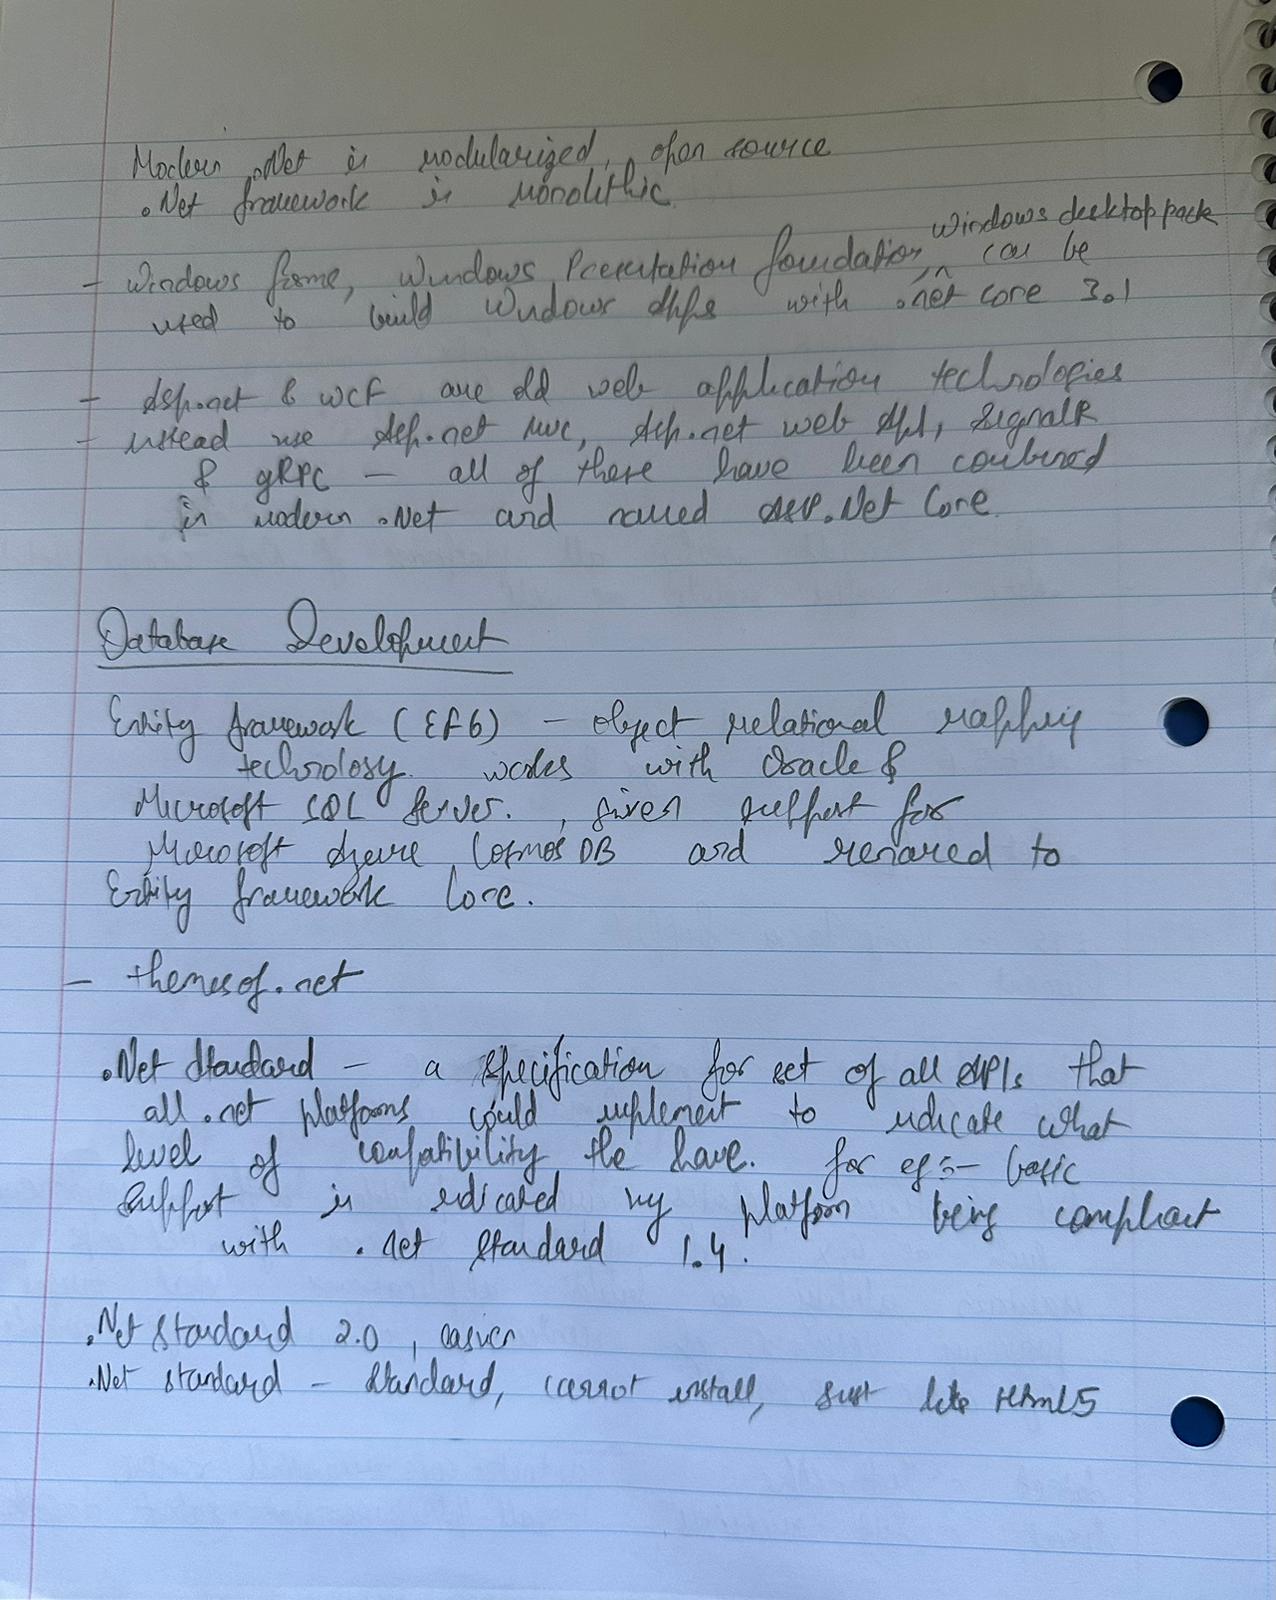 Modern .Net is modularized, open source
.Net framework is monolithic
windows desktop pack
- windows forms, windows Presentation foundation, can be
used to build windows apps with .net core 3.1
- Asp.net & WCF are old web application technologies
- instead use Asp.net MVC, Asp.net web API, SignalR
& gRPC - all of these have been combined
in modern .Net and named ASP.Net Core
Database Development
Entity framework (EF6) - object relational mapping
technology. works with Oracle &
Microsoft SQL Server. , given support for
Microsoft Azure Cosmos DB and renamed to
Entity framework Core.
- themesof.net
.Net Standard - a specification for set of all APIs that
all .net platforms could implement to indicate what
level of compatibility the have. for eg :- basic
support is indicated by platform being compliant
with .net standard 1.4.
.Net Standard 2.0, easier
.Net standard - standard, cannot install, just like HTML5